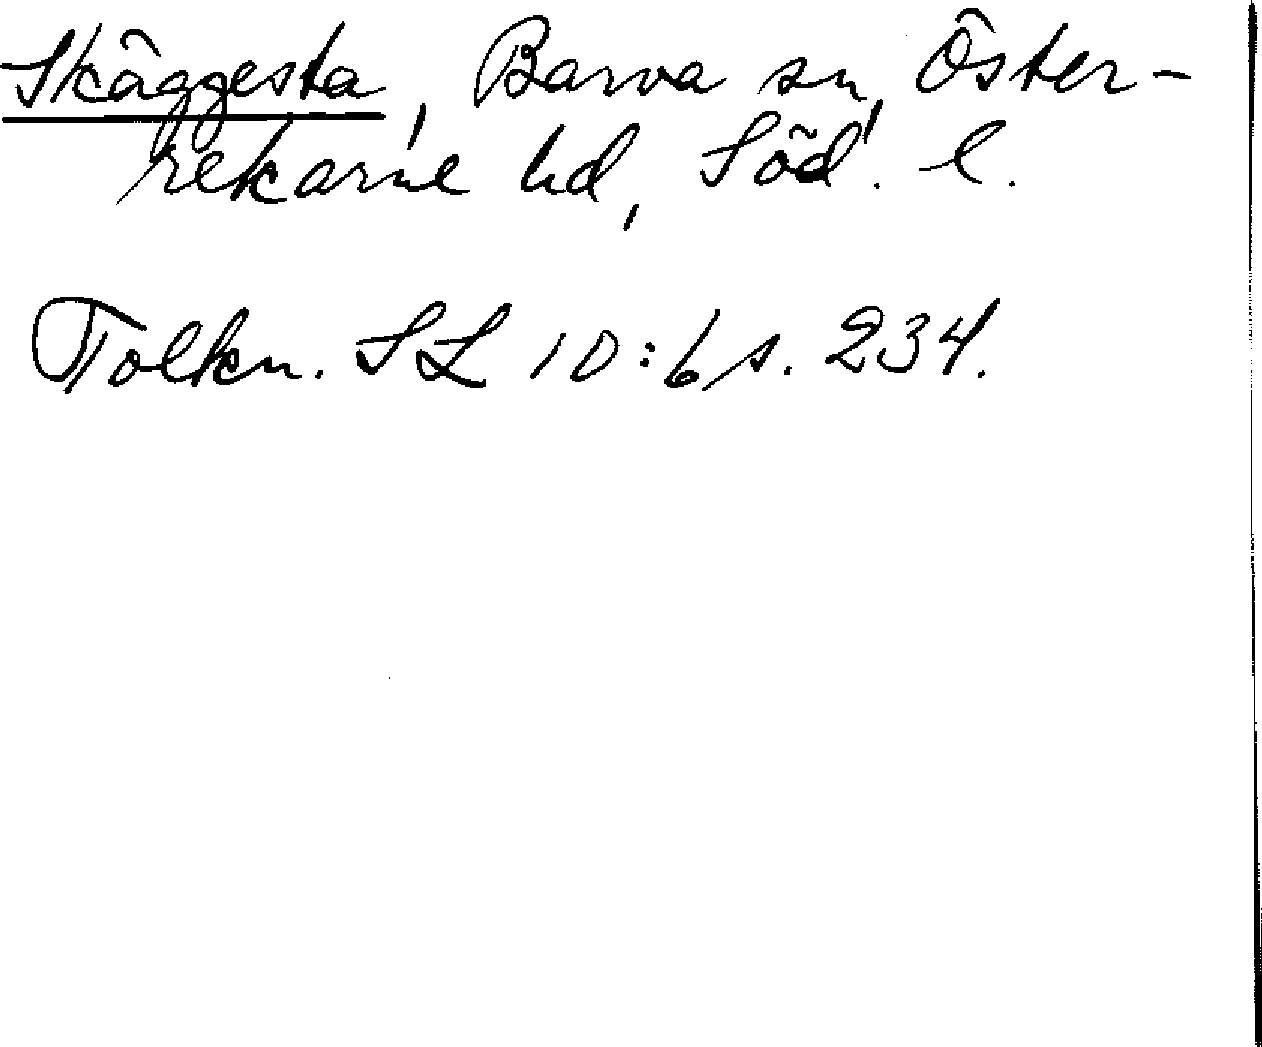 Skäggesta, Barva sn, Öster-
rekarne hd, Söd. l.
Tolkn. SL 10:6 s. 234.